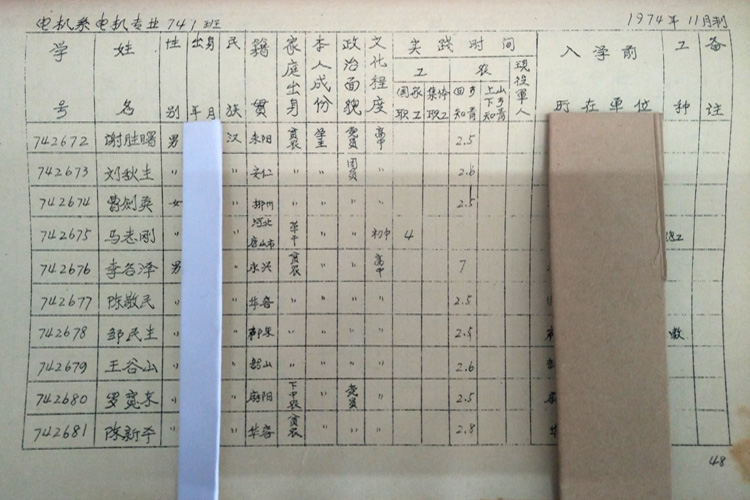 电机系电机专业741班 1974年11月制
学号 姓名 性别 出身年月 民族 籍贯 家庭出身 本人成份 政治面貌 文化程度 实践时间 入学前所在单位 工种 备注
工 农 现役军人
国家职工 集体职工 回乡知青 上山下乡知青
742672 谢胜曙 男 汉 耒阳 贫农 学生 党员 高中 2.5
742673 刘秋生 〃 〃 安仁 〃 〃 团员 〃 2.6
742674 曾剑奕 女 〃 郴州 〃 〃 〃 〃 2.5
742675 马志刚 〃 〃 河北唐山市 革干 〃 〃 初中 4
742676 李谷泽 男 〃 永兴 贫农 〃 〃 高中 7
742677 陈敬民 〃 〃 华容 〃 〃 〃 〃 2.5
742678 邹民生 〃 〃 〃 〃 〃 〃 2.5
742679 王谷山 〃 〃 韶山 〃 〃 〃 〃 2.6
742680 罗宽东 〃 〃 麻阳 下中农 〃 党员 〃 2.5
742681 陈新平 〃 〃 华容 贫农 〃 〃 〃 2.8
48